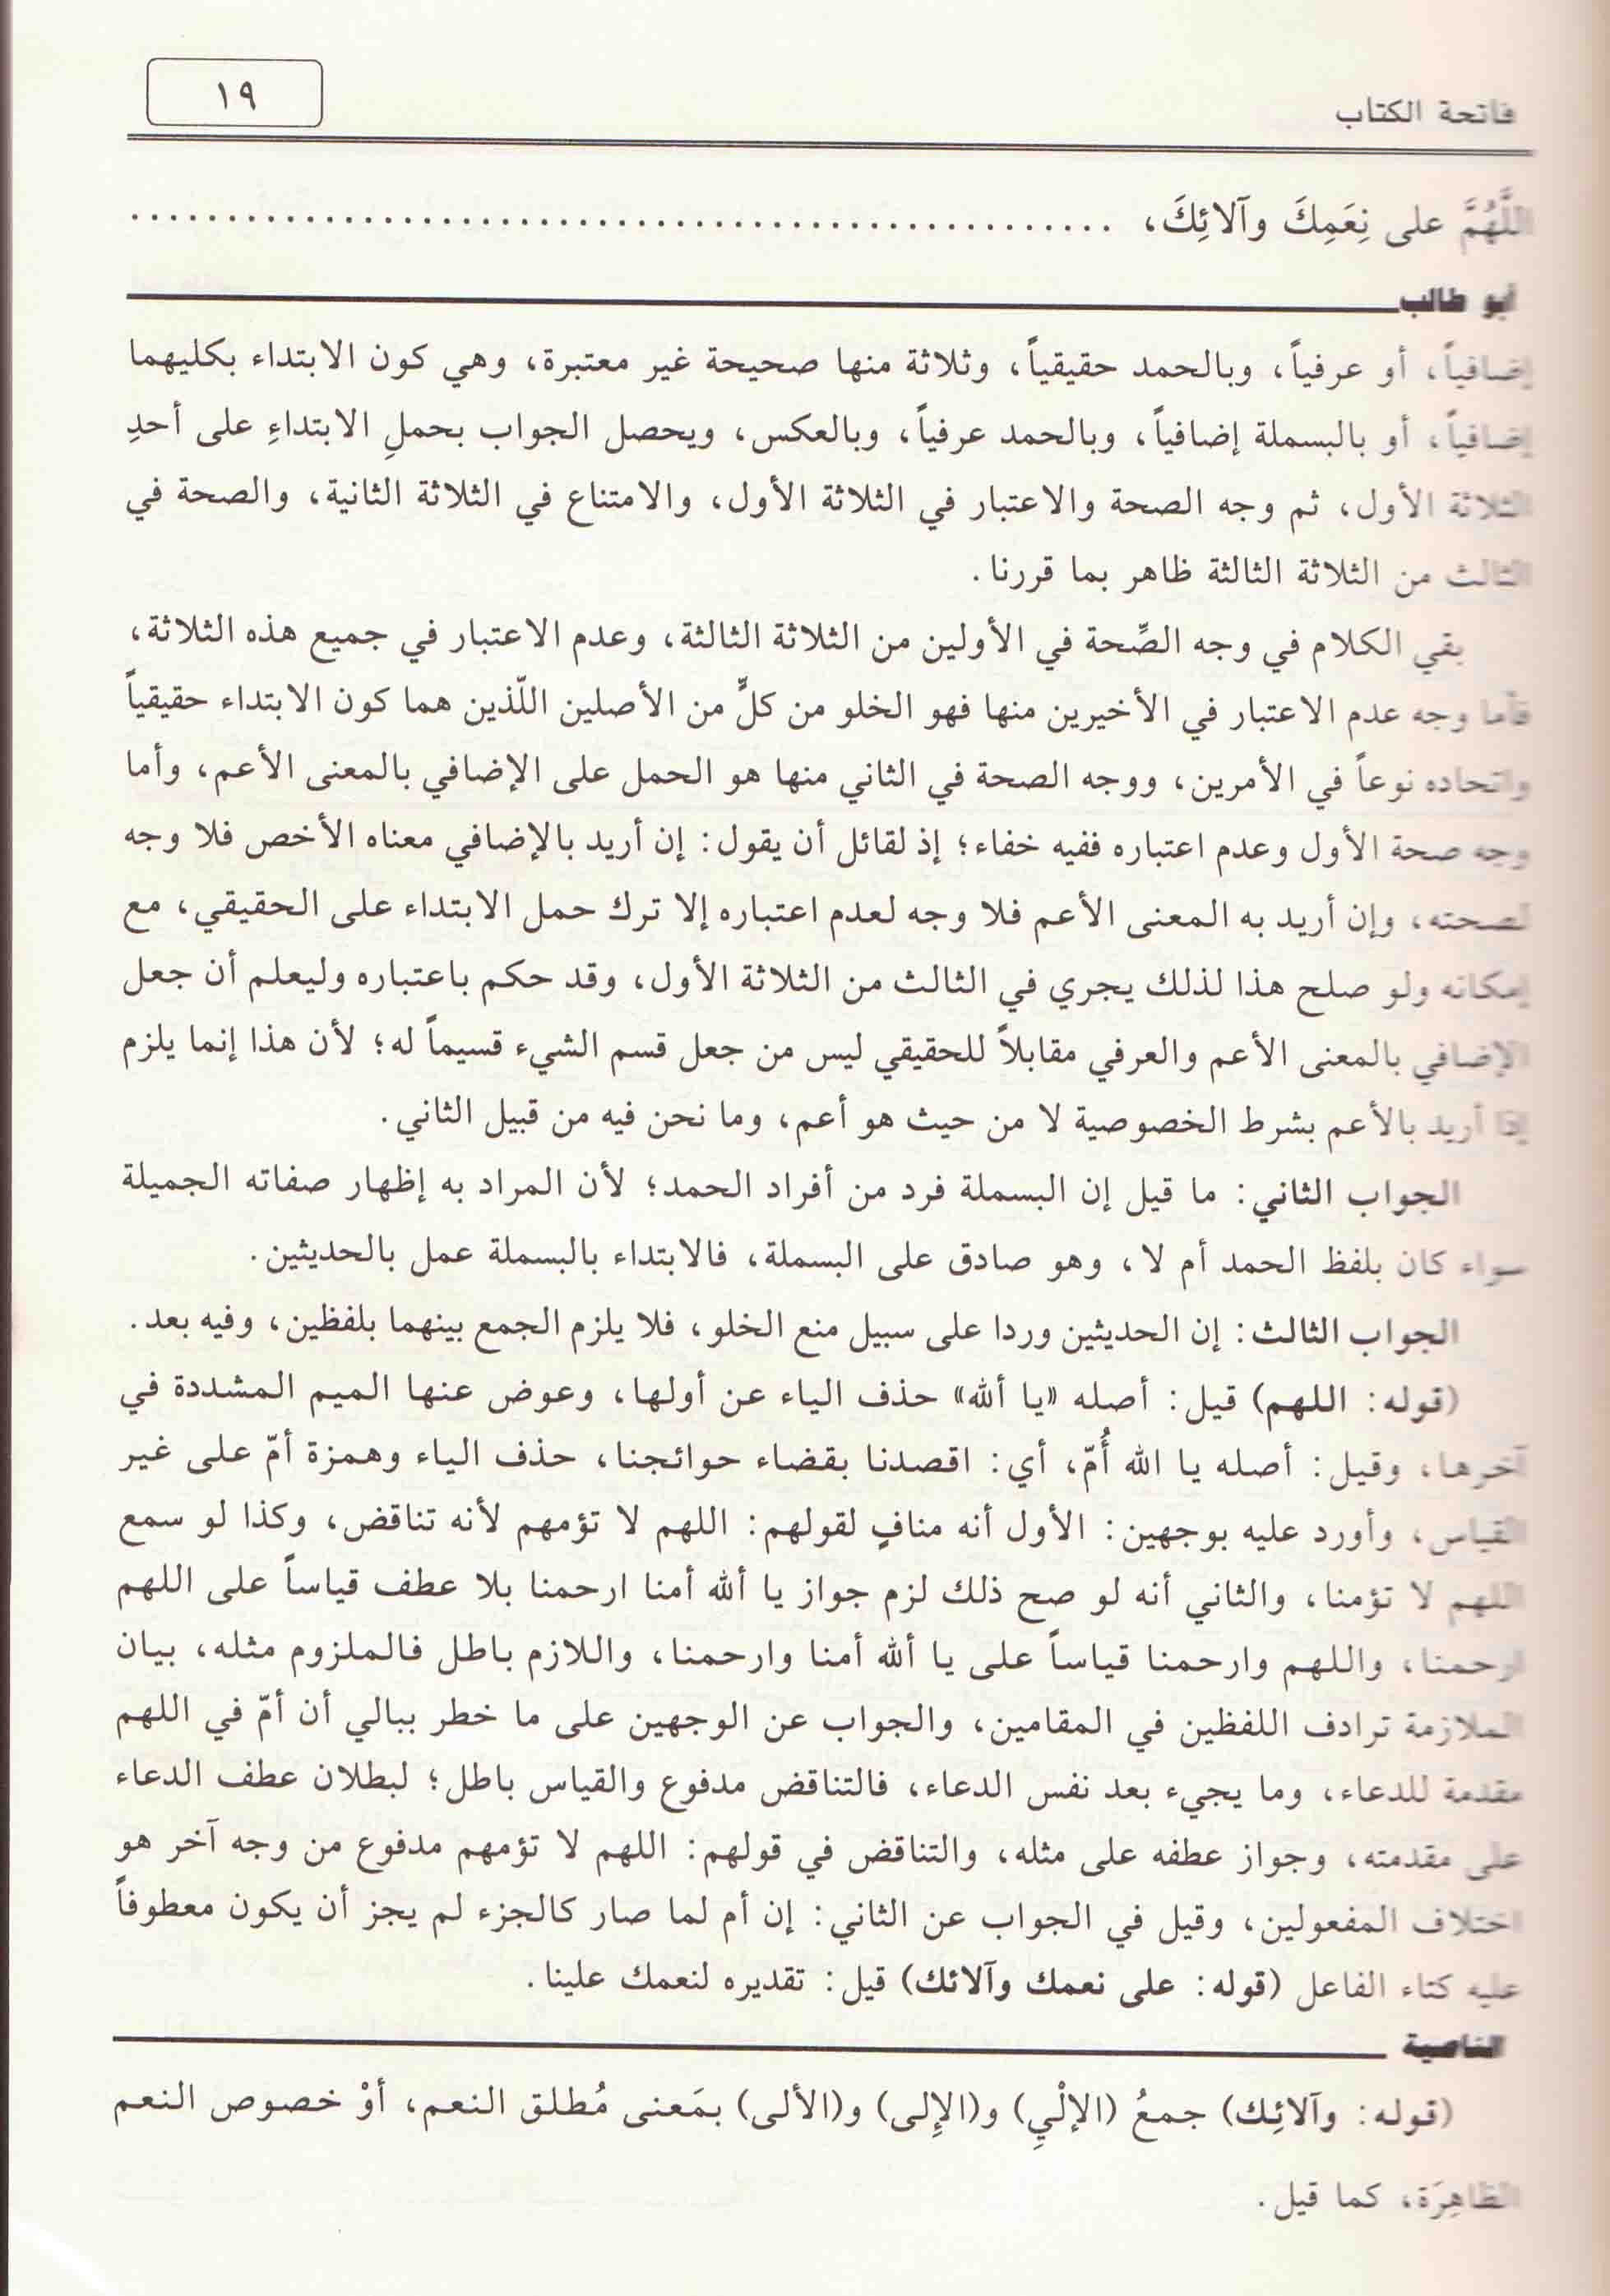 فاتحة الكتاب
١٩
اللَّهُمَّ على نِعَمِكَ وآلائِكَ، ......................................................
أبو طالب
إضافياً، أو عرفياً، وبالحمد حقيقياً، وثلاثة منها صحيحة غير معتبرة، وهي كون الابتداء بكليهما
إضافياً، أو بالبسملة إضافياً، وبالحمد عرفياً، وبالعكس، ويحصل الجواب بحملِ الابتداءِ على أحدِ
الثلاثة الأول، ثم وجه الصحة والاعتبار في الثلاثة الأول، والامتناع في الثلاثة الثانية، والصحة في
الثالث من الثلاثة الثالثة ظاهر بما قررنا.
بقي الكلام في وجه الصِّحة في الأولين من الثلاثة الثالثة، وعدم الاعتبار في جميع هذه الثلاثة،
فأما وجه عدم الاعتبار في الأخيرين منها فهو الخلو من كلٍّ من الأصلين اللّذين هما كون الابتداء حقيقياً
واتحاده نوعاً في الأمرين، ووجه الصحة في الثاني منها هو الحمل على الإضافي بالمعنى الأعم، وأما
وجه صحة الأول وعدم اعتباره ففيه خفاء؛ إذ لقائل أن يقول: إن أريد بالإضافي معناه الأخص فلا وجه
لصحته، وإن أريد به المعنى الأعم فلا وجه لعدم اعتباره إلا ترك حمل الابتداء على الحقيقي، مع
إمكانه ولو صلح هذا لذلك يجري في الثالث من الثلاثة الأول، وقد حكم باعتباره وليعلم أن جعل
الإضافي بالمعنى الأعم والعرفي مقابلاً للحقيقي ليس من جعل قسم الشيء قسيماً له؛ لأن هذا إنما يلزم
إذا أريد بالأعم بشرط الخصوصية لا من حيث هو أعم، وما نحن فيه من قبيل الثاني.
الجواب الثاني: ما قيل إن البسملة فرد من أفراد الحمد؛ لأن المراد به إظهار صفاته الجميلة
سواء كان بلفظ الحمد أم لا، وهو صادق على البسملة، فالابتداء بالبسملة عمل بالحديثين.
الجواب الثالث: إن الحديثين وردا على سبيل منع الخلو، فلا يلزم الجمع بينهما بلفظين، وفيه بعد.
(قوله: اللهم) قيل: أصله «يا ألله» حذف الياء عن أولها، وعوض عنها الميم المشددة في
آخرها، وقيل: أصله يا الله أُمّ، أي: اقصدنا بقضاء حوائجنا، حذف الياء وهمزة أمّ على غير
القياس، وأورد عليه بوجهين: الأول أنه منافٍ لقولهم: اللهم لا تؤمهم لأنه تناقض، وكذا لو سمع
اللهم لا تؤمنا، والثاني أنه لو صح ذلك لزم جواز يا ألله أمنا ارحمنا بلا عطف قياساً على اللهم
ارحمنا، واللهم وارحمنا قياساً على يا ألله أمنا وارحمنا، واللازم باطل فالملزوم مثله، بيان
الملازمة ترادف اللفظين في المقامين، والجواب عن الوجهين على ما خطر ببالي أن أمّ في اللهم
مقدمة للدعاء، وما يجيء بعد نفس الدعاء، فالتناقض مدفوع والقياس باطل؛ لبطلان عطف الدعاء
على مقدمته، وجواز عطفه على مثله، والتناقض في قولهم: اللهم لا تؤمهم مدفوع من وجه آخر هو
اختلاف المفعولين، وقيل في الجواب عن الثاني: إن أم لما صار كالجزء لم يجز أن يكون معطوفاً
عليه كتاء الفاعل (قوله: على نعمك وآلائك) قيل: تقديره لنعمك علينا.
الناصية
(قوله: وآلائِك) جمعُ (الإلْيِ) و(الإِلى) و(الألى) بمَعنى مُطلق النعم، أوْ خصوص النعم
الظاهِرَة، كما قيل.